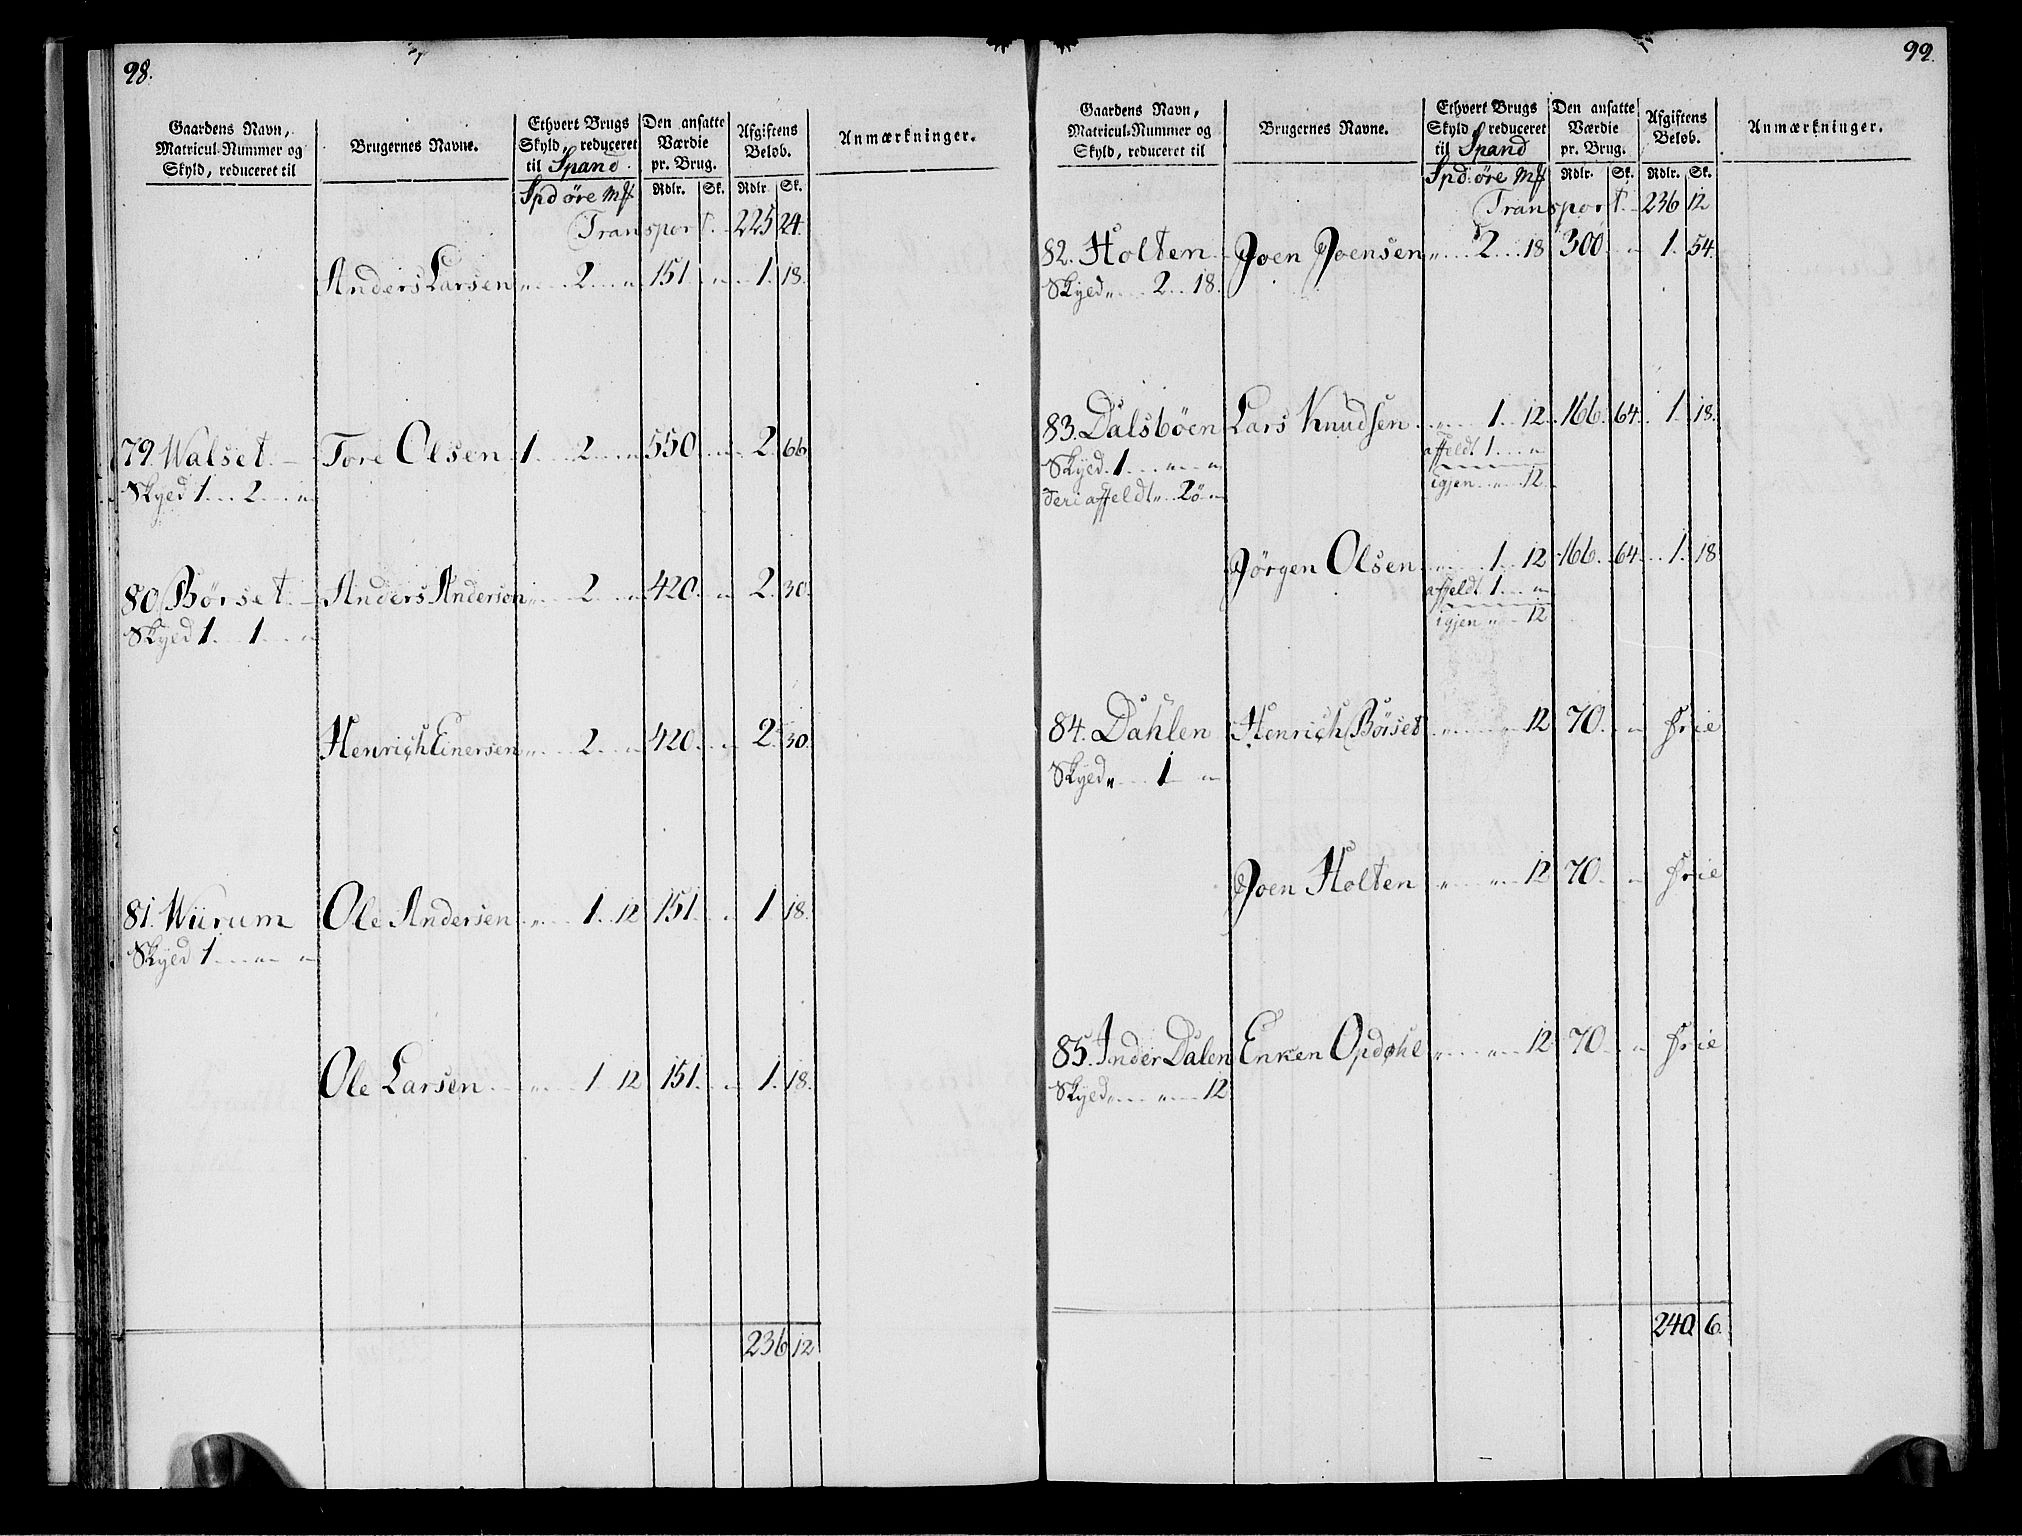 98.
Gaardens Navn, Matricul-Nummer og Skyld, reduceret til
Brugernes Navne.
Ethvert Brugs Skyld, reduceret til Spand.
Den ansatte Værdie pr. Brug.
Afgiftens Beløb.
Anmærkninger.
Spd øre Mk Rdlr. Sk. Rdlr Sk.
Transport. 225 24.
Anders Larsen „ 2 „ 151. „ 1. 18.
79. Walset. Tore Olsen 1. 2 „ 550 „ 2. 66
Skyed 1 2 „
80 Børset. Anders Andersen „ 2 „ 420. „ 2. 30.
Skyed 1. 1 „
Henrich Einersen „ 2 „ 420. „ 2. 30.
81. Wiirum Ole Andersen „ 1. 12 151. „ 1. 18.
Skyed 1 „ „
Ole Larsen „ 1. 12 151. „ 1. 18.
236 12
99.
Gaardens Navn, Matricul-Nummer og Skyld, reduceret til
Brugernes Navne.
Ethvert Brugs Skyld, reduceret til Spand
Den ansatte Værdie pr. Brug.
Afgiftens Beløb.
Anmærkninger.
Spd: øre Mk Rdlr. Sk. Rdlr. Sk.
Transport. 236 12
82. Holten Joen Joensen „ 2 18 300 „ 1. 54.
Skyed „ 2 18.
83. Dalsbøen Lars Knudsen „ 1. 12. 166. 64. 1. 18.
affeldt 1 „
Skyed. 1 „ „
igjen „ 12.
deri affeldt „ 2ø „
Jörgen Olsen „ 1. 12 166. 64. 1. 18
affeldt 1. „
igjen „ 12
84. Dahlen Henrich Børset „ „ 12 70. „ frie
Skyed „ 1 „
Joen Holten „ „ 12 70. „ frie
85. Inder Dalen Enken Opdahl „ „ 12 70. „ frie
Skyed „ „ 12.
240 6.